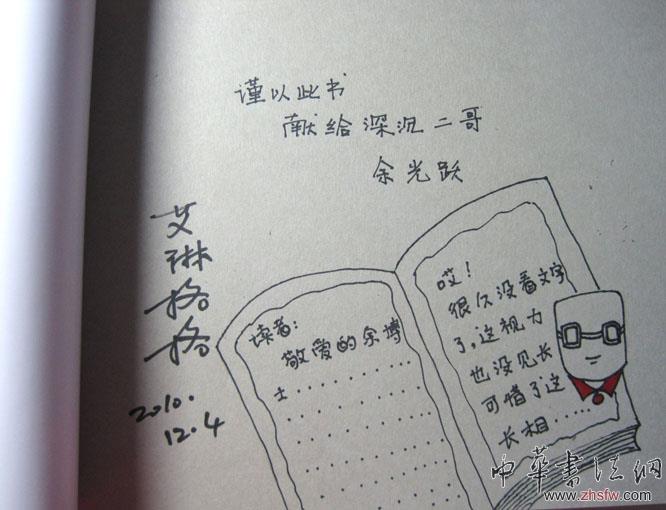 谨以此书
献给深沉二哥
余光跃
艾琳格格
2010.
12.4
读者:
敬爱的余博
士..........
哎!
很久没看文字
了,这视力
也没见长
可惜了这
长相......
中华书法网
www.zhsfw.com